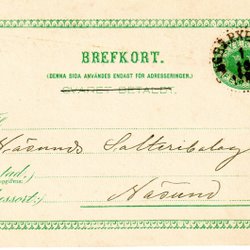 BREFKORT.
(DENNA SIDA ANVÄNDES ENDAST FÖR ADRESSERINGEN.)
SVARET BETALDT.
Näsunds Salteribolag
Näsund